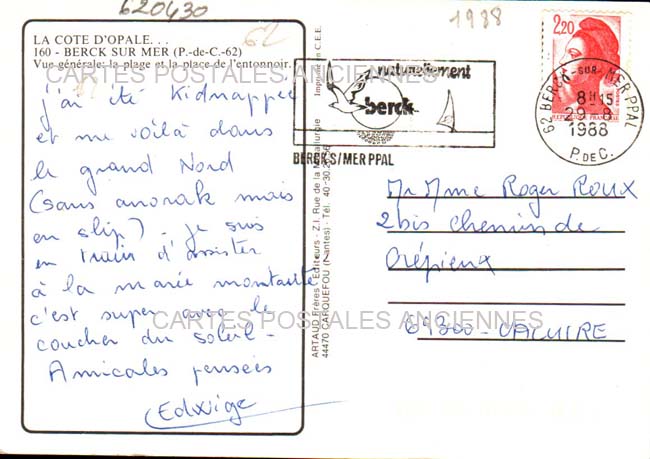 620430
1988
62
LA COTE D'OPALE. . .
160 - BERCK SUR MER (P.-de-C.-62)
Vue générale: la plage et la place de l'entonnoir.
CARTES POSTALES ANCIENNES
j'ai été kidnappée
et me voilà dans
le grand Nord
(sans anorak mais
en slip). je suis
en train d'assister
à la marée montante
c'est super avec le
coucher du soleil -
Amicales pensées
Edwige
Imprimé en C.E.E.
ARTAUD Frères - Editeurs - Z.I. Rue de la Métallurgie
44470 CARQUEFOU (Nantes) - Tél. 40-30.
naturellement
berck
BERCK S/MER PPAL
2,20
REPUBLIQUE FRANCAISE
62 BERCK-SUR-MER PPAL
8H15
29-8
1988
P. DE C.
Mr Mme Roger Roux
2bis Chemin de
Crépieux
69300 - CALUIRE
CARTES POSTALES ANCIENNES